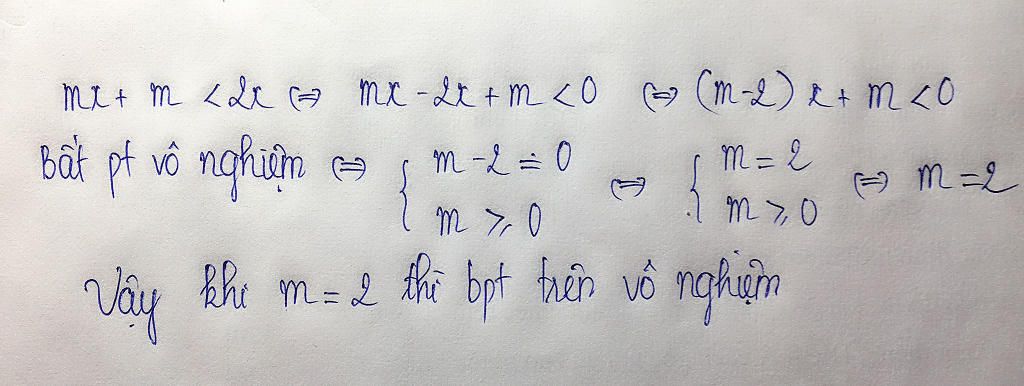 mx + m < 2x ⇔ mx - 2x + m < 0 ⇔ (m-2) x + m < 0
Bất pt vô nghiệm ⇔ { m - 2 = 0 ; m ⩾ 0 ⇔ { m = 2 ; m ⩾ 0 ⇔ m = 2
Vậy khi m = 2 thì bpt trên vô nghiệm